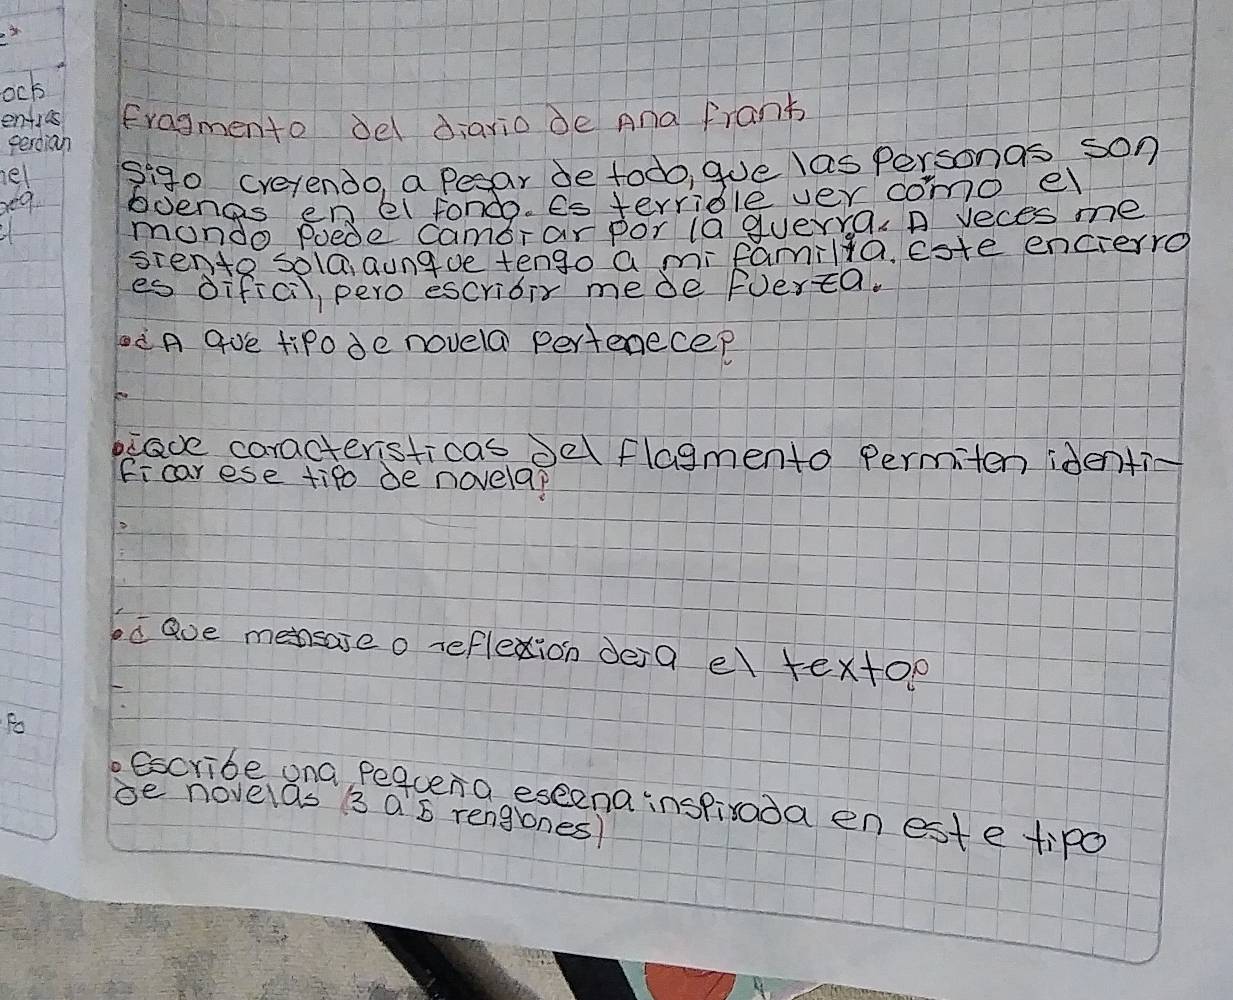 ock
entras
perdian
nel
Fragmento del diario de Ana Frank
Sigo creyendo, a pesar de todo, que las personas son
buenas en el fondo. Es terrible ver como el
mundo puede cambiar por la guerra. A veces me
siento sola, aunque tengo a mi familia. Este encierro
es dificil, pero escribir me de fuerza.
•¿A que tipo de novela pertenece?
•¿Que caracteristicas del flagmento permiten identi-
ficar ese tipo de novela?
•¿Que mensaje o reflexion deja el texto?
Po
•Escribe una pequeña eseena inspirada en este tipo
de novelas (3 a 5 renglones)